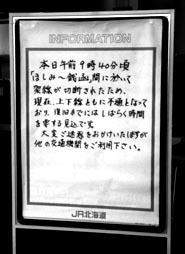 INFORMATION
本日午前9時40分頃
「ほしみ〜銭函」間に於いて
架線が切断されたため、
現在、上下線ともに不通となって
おり、復旧までにはしばらく時間
を要する見込です
大変ご迷惑をおかけいたしますが
他の交通機関をご利用下さい。
JR北海道